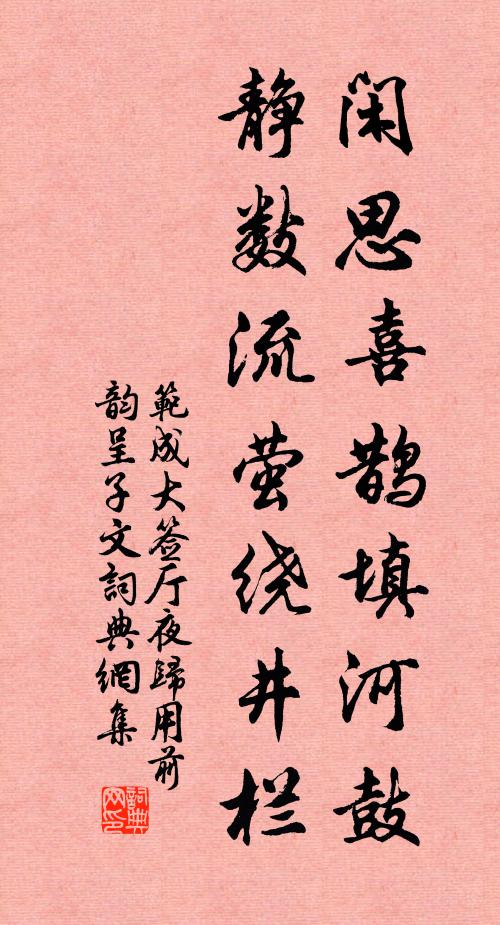 闲思喜鹊填河鼓
静数流萤绕井栏
範成大签厅夜歸用前
韵呈子文詞典網集
詞典网印